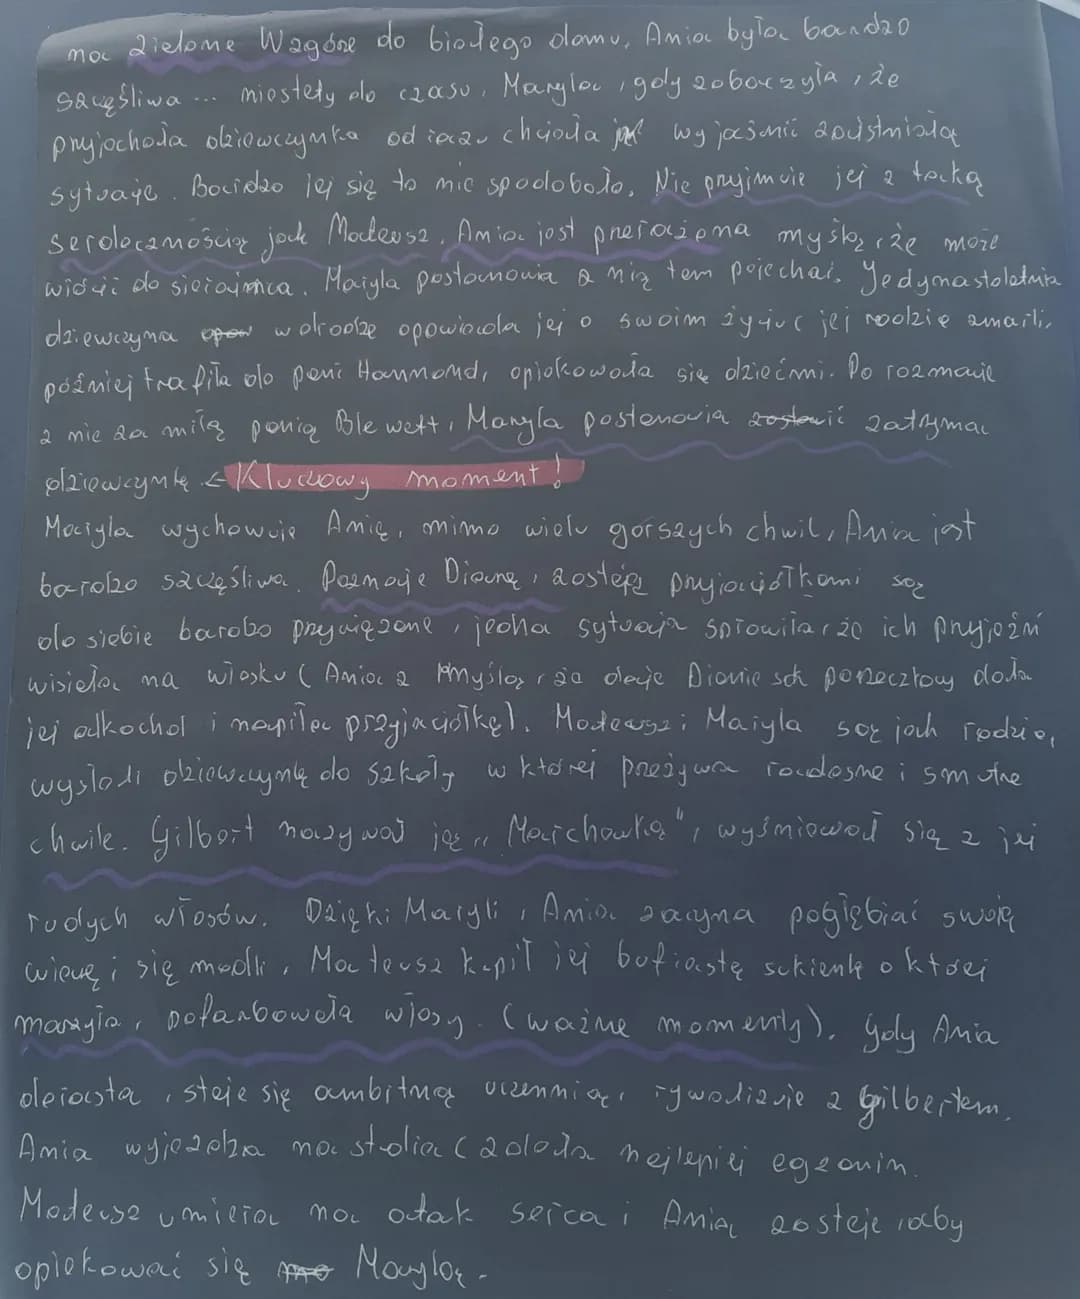 na Zielone Wzgórze do białego domu, Ania była bardzo
szczęśliwa ... niestety do czasu. Maryla, gdy zobaczyła, że
przyjechała dziewczynka od razu chciała wyjaśnić zaistniałą
sytuację. Bardzo jej się to nie spodobało. Nie przyjmuje jej z taką
serdecznością jak Mateusz. Ania jest przerażona myślą, że może
wrócić do sierocińca. Maryla postanowia z nią tam pojechać. Jedynastoletnia
dziewczyna w drodze opowiada jej o swoim życiu: jej rodzie zmarli,
później trafiła do pani Hammond, opiekowała się dziećmi. Po rozmowie
z nie za miłą panią Blewett, Maryla postanawia zostawić zatrzymać
dziewczynkę ← Kluczowy moment!
Maryla wychowuje Anię, mimo wielu gorszych chwil, Ania jest
bardzo szczęśliwa. Poznaje Dianę, zostają przyjaciółkami są
do siebie bardzo przywiązane, jedna sytuacja sprawiła, że ich przyjaźń
wisiała na włosku (Ania z myślą, że daje Dianie sok porzeczkowy dała
jej alkohol i napiła przyjaciółkę). Mateusz i Maryla są jak rodzice,
wysłali dziewczynkę do szkoły w której przeżywa radosne i smutne
chwile. Gilbert nazywał ją „Marchewką", wyśmiewał się z jej
rudych włosów. Dzięki Maryli, Ania zaczyna pogłębiać swoją
wiarę i się modli. Mateusz kupił jej bufiastę sukienkę o której
marzyła, pofarbowała włosy. (ważne momenty). Gdy Ania
dorasta, staje się ambitną uczennicą, rywalizuje z Gilbertem.
Ania wyjeżdża na studia (zdała najlepiej egzamin.
Mateusz umiera na atak serca i Ania zostaje, aby
opiekować się Marylą.